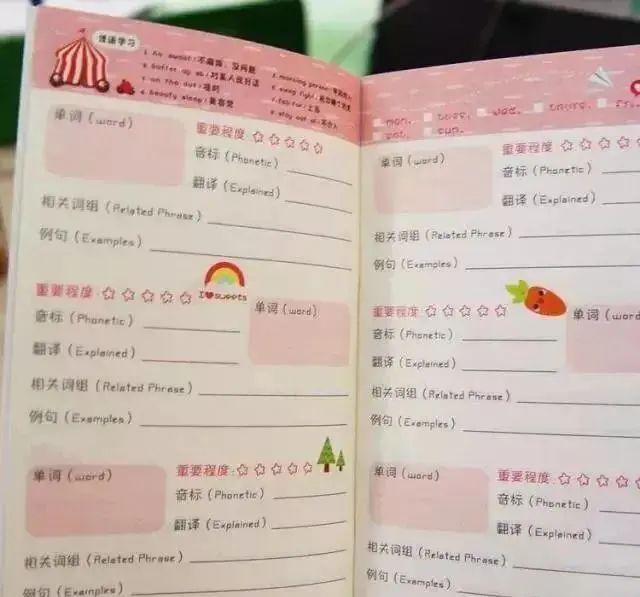 英语学习
1. no sweat: 不麻烦、没问题
2. butter up sb: 对某人说好话
3. on the dot: 准时
4. beauty sleep: 美容觉
7. fab for: 上当
8. stay out of
单词 (word)
重要程度:
音标 (Phonetic)
翻译 (Explained)
相关词组 (Related Phrase)
例句 (Examples)
重要程度:
I sweets
单词 (word)
音标 (Phonetic)
翻译 (Explained)
相关词组 (Related Phrase)
例句 (Examples)
单词 (word)
重要程度:
音标 (Phonetic)
翻译 (Explained)
相关词组 (Related Phrase)
例句 (Examples)
mon. tues. wed. thurs. fri
sat. sun.
单词 (word)
重要程度:
音标 (Phonetic)
翻译 (Explained)
相关词组 (Related Phrase)
例句 (Examples)
重要程度:
单词 (word
音标 (Phonetic)
翻译 (Explained)
相关词组 (Related Phrase)
例句 (Examples)
单词 (word)
重要程度:
音标 (Phonetic)
翻译 (Explained)
相关词组 (Related Phrase)
例句 (Examples)